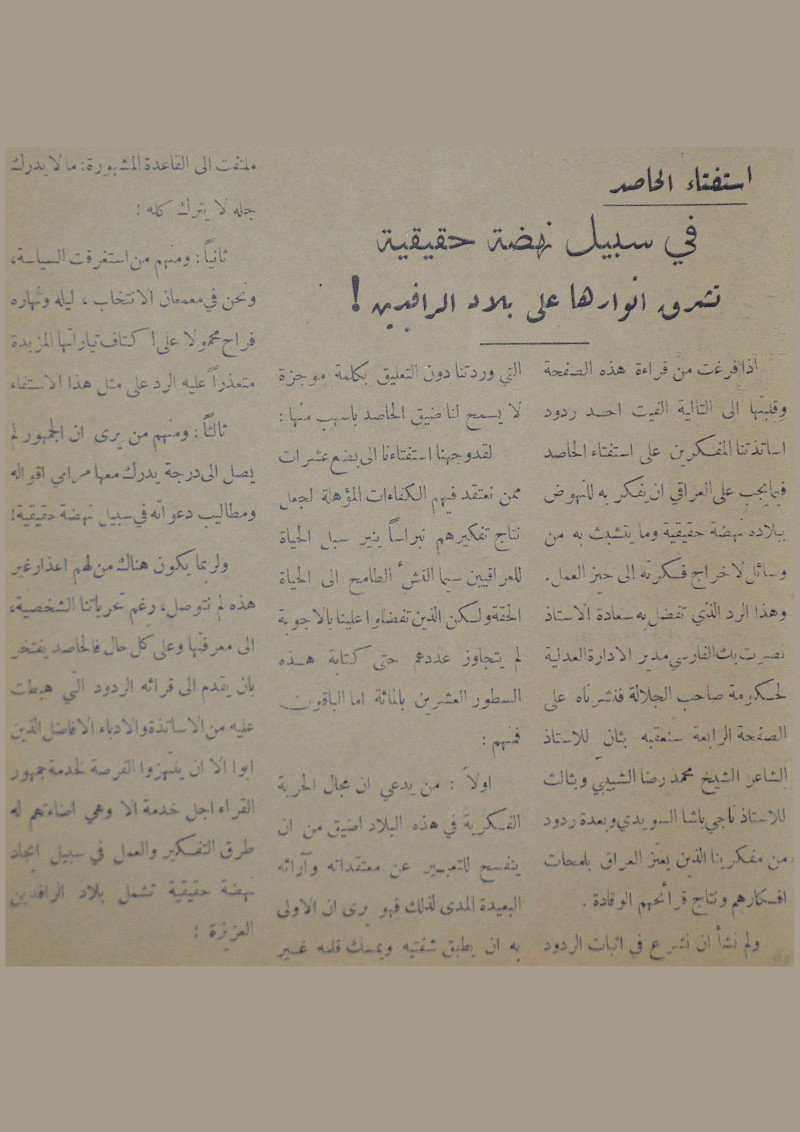 استفتاء الحاصد
في سبيل نهضة حقيقية
تشرق انوارها على بلاد الرافدين !
اذا فرغت من قراءة هذه الصفحة
وقلبتها الى التالية الفيت احد ردود
اساتذتنا المفكرين على استفتاء الحاصد
فيما يجب على العراقي ان يفكر به للنهوض
ببلاده نهضة حقيقية وما يتشبث به من
وسائل لاخراج فكرته إلى حيز العمل.
وهذا الرد الذي تفضل به سعادة الاستاذ
نصرت بك الفارسي مدير الادارة العدلية
لحكومة صاحب الجلالة فنشرناه على
الصفحة الرابعة سنعقبه بثان للاستاذ
الشاعر الشيخ محمد رضا الشبيبي وبثالث
للاستاذ ناجي باشا السويدي وبعدة ردود
من مفكرينا الذين يعتز العراق بلمحات
افكارهم ونتاج قرائحهم الوقادة .
ولم نشأ ان نشرع في اثبات الردود
التي وردتنا دون التعليق بكلمة موجزة
لا يسمح لنا ضيق الحاصد باسهب منها :
لقد وجهنا استفتاءنا الى بضع عشرات
ممن نعتقد فيهم الكفاءات المؤهلة لجعل
نتاج تفكيرهم نبراساً ينير سبل الحياة
للعراقيين سيما النشء الطامح الى الحياة
الحقة ولكن الذين تفضلوا علينا بالاجوبة
لم يتجاوز عددهم حتى كتابة هذه
السطور العشرين بالمائة اما الباقون
فمنهم :
اولاً : من يدعي ان مجال الحرية
الفكرية في هذه البلاد اضيق من ان
ينفسح للتعبير عن معتقداته وآرائه
البعيدة المدى لذلك فهو يرى ان الاولى
به ان يطبق شفتيه ويمسك قلمه غير
ملتفت الى القاعدة المشهورة: ما لا يدرك
جله لا يترك كله !
ثانياً : ومنهم من استغرقت السياسة،
ونحن في معمعان الانتخاب ، ليله ونهاره
فراح محمولا على اكتاف تياراتها المزبدة
متعذراً عليه الرد على مثل هذا الاستفتاء
ثالثاً : ومنهم من يرى ان الجمهور لم
يصل الى درجة يدرك معها مرامي اقواله
ومطاليب دعواته في سبيل نهضة حقيقية!
ولربما يكون هناك من لهم اعذار غير
هذه لم نتوصل، رغم تحرياتنا الشخصية،
الى معرفتها وعلى كل حال فالحاصد يفتخر
بان يقدم الى قرائه الردود التي هبطت
عليه من الاساتذة والادباء الافاضل الذين
ابوا الا ان ينتهزوا الفرصة لخدمة جمهور
القراء اجل خدمة الا وهي اضاءتهم له
طرق التفكير والعمل في سبيل ايجاد
نهضة حقيقية تشمل بلاد الرافدين
العزيزة !